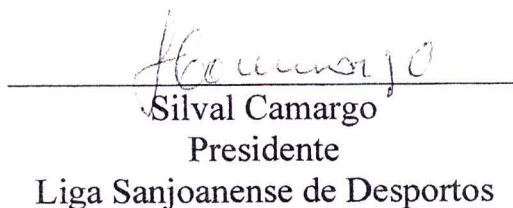 Silval Camargo
Presidente
Liga Sanjoanense de Desportos